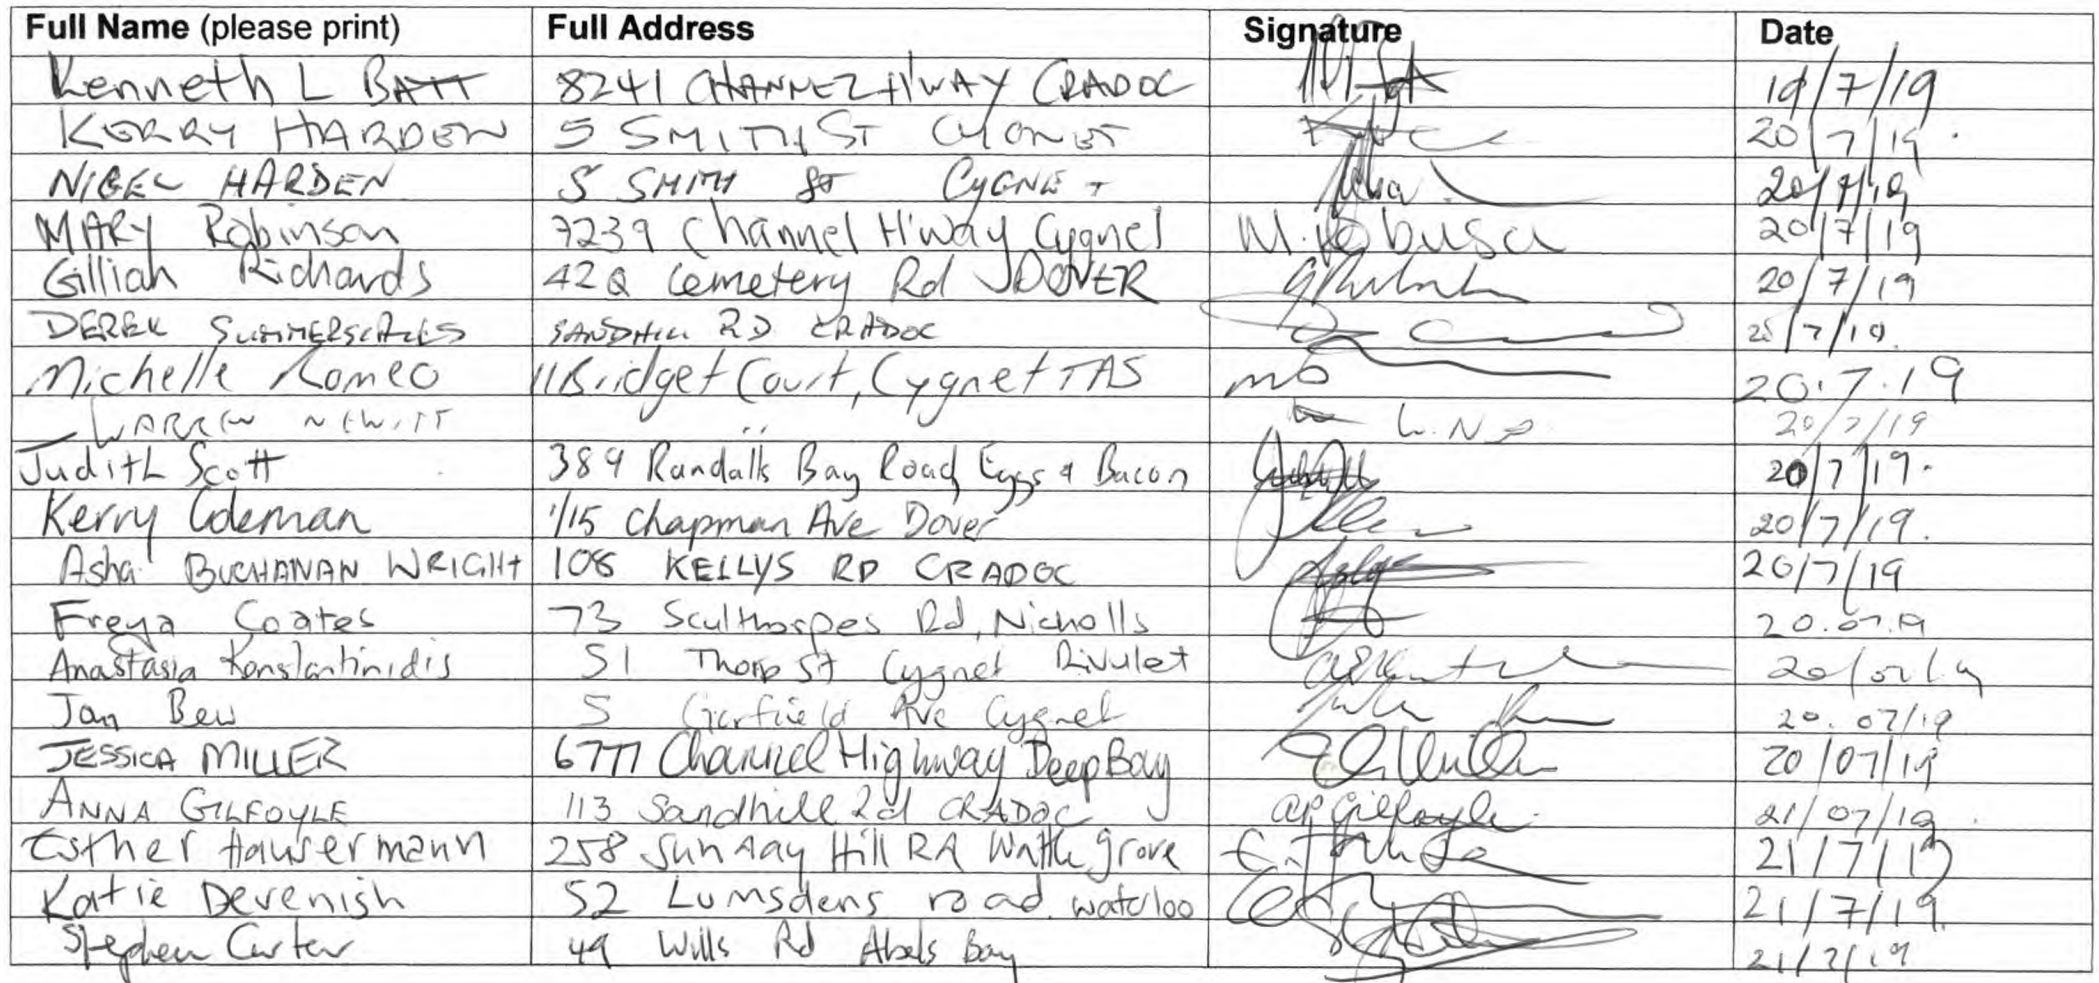 Full Name (please print) Full Address Signature Date
Kenneth L BATT 8241 CHANNEL H'WAY CRADOC 19/7/19
KERRY HARDEN 5 SMITH ST CYGNET 20/7/19.
NIGEL HARDEN 5 SMITH ST CYGNET 20/7/19
MARY Robinson 7239 Channel H'way Cygnet M. Robinson 20/7/19
Gillian Richards 42 Cemetery Rd DOVER 20/7/19
DEREK SUMMERSCALES SANDHILL RD CRADOC /7/19.
Michelle Romeo 11 Bridget Court, Cygnet TAS 20.7.19
WARREN NEWITT " 20/7/19
Judith Scott 389 Randalls Bay Road Eggs & Bacon 20/7/19.
Kerry Coleman 1/15 Chapman Ave Dover 20/7/19.
Asha BUCHANAN WRIGHT 108 KELLYS RD CRADOC 20/7/19
Freya Coates 73 Sculthorpes Rd, Nicholls 20.07.19
Anastasia Konstantinidis 51 Thorp St Cygnet Rivulet 20/07/19
Jan Bew 5 Garfield Ave Cygnet 20.07/19
JESSICA MILLER 6777 Channel Highway Deep Bay 20/07/19
ANNA GILFOYLE 113 Sandhill Rd CRADOC Gilfoyle 21/07/19
Esther Hausermann 258 Sunday Hill Rd Wattle grove 21/7/19
Katie Devenish 52 Lumsdens road waterloo 21/7/19
Stephen Carter 49 Wills Rd Abels Bay 21/7/19